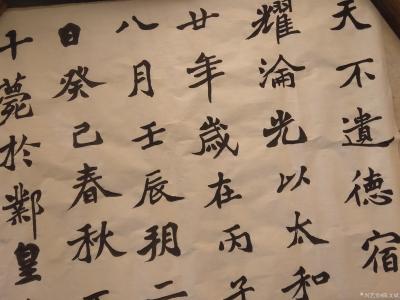 天不遺德宿
耀淪光以太和
廿年歲在丙子
八月壬辰朔二
日癸己春秋
十薨於鄴皇